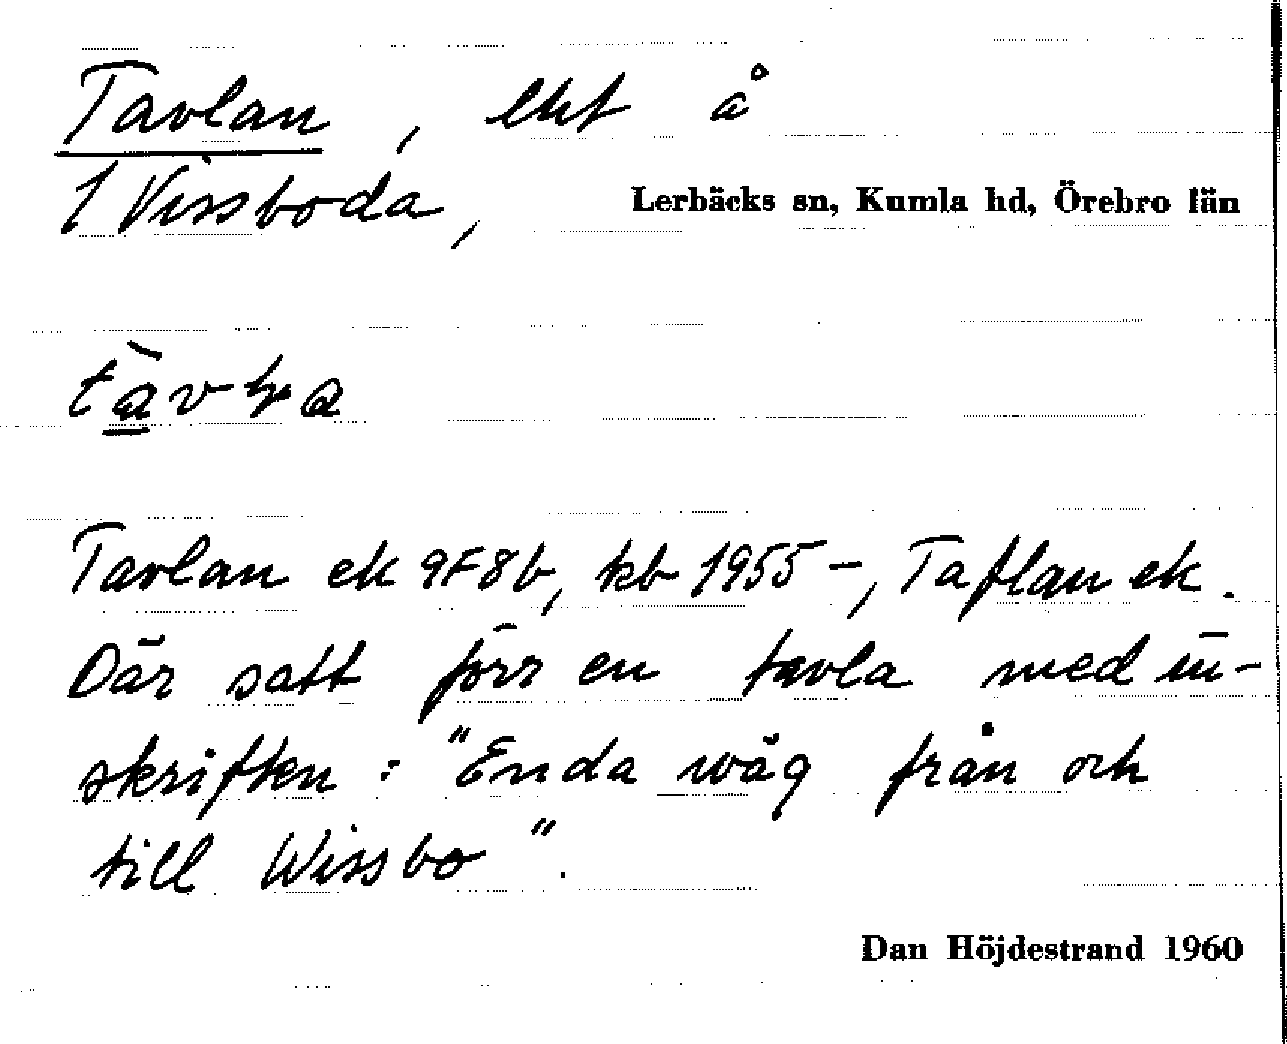 Tavlan, lht å
1 Vissboda, Lerbäcks sn, Kumla hd, Örebro län
Tavlan ek 9F8b, kb 1955 –, Taflan ek.
Där satt förr en tavla med in-
skriften: "Enda wäg från och
till Wissbo".
Dan Höjdestrand 1960